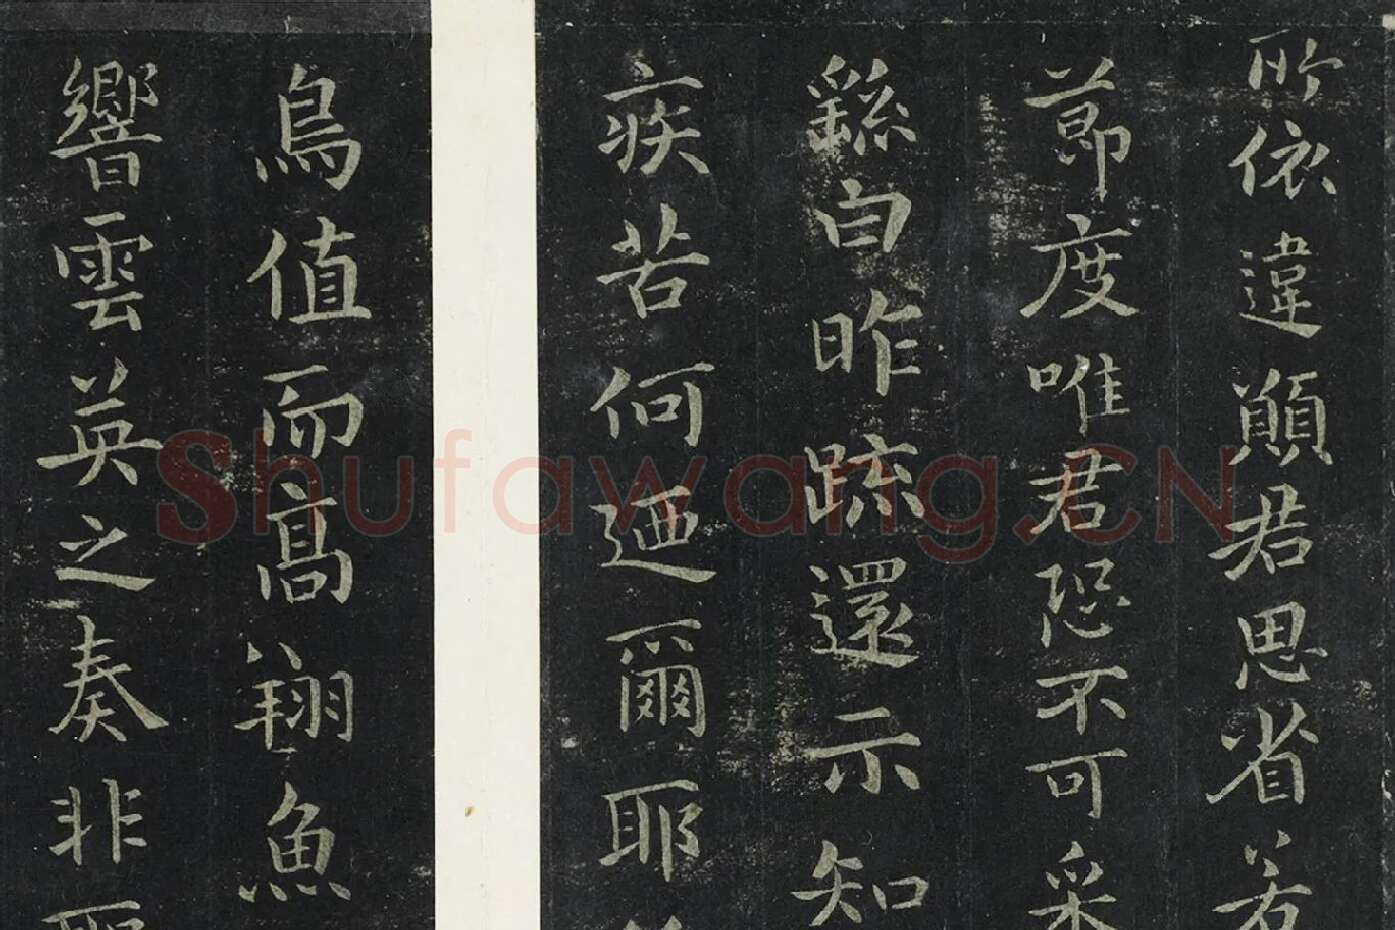 所依違顛君思省若
節度唯君恐不可采
繇白昨疏還示知
疾苦何迺爾耶
鳥值而高翔魚
響雲英之奏非
Shufawang.CN